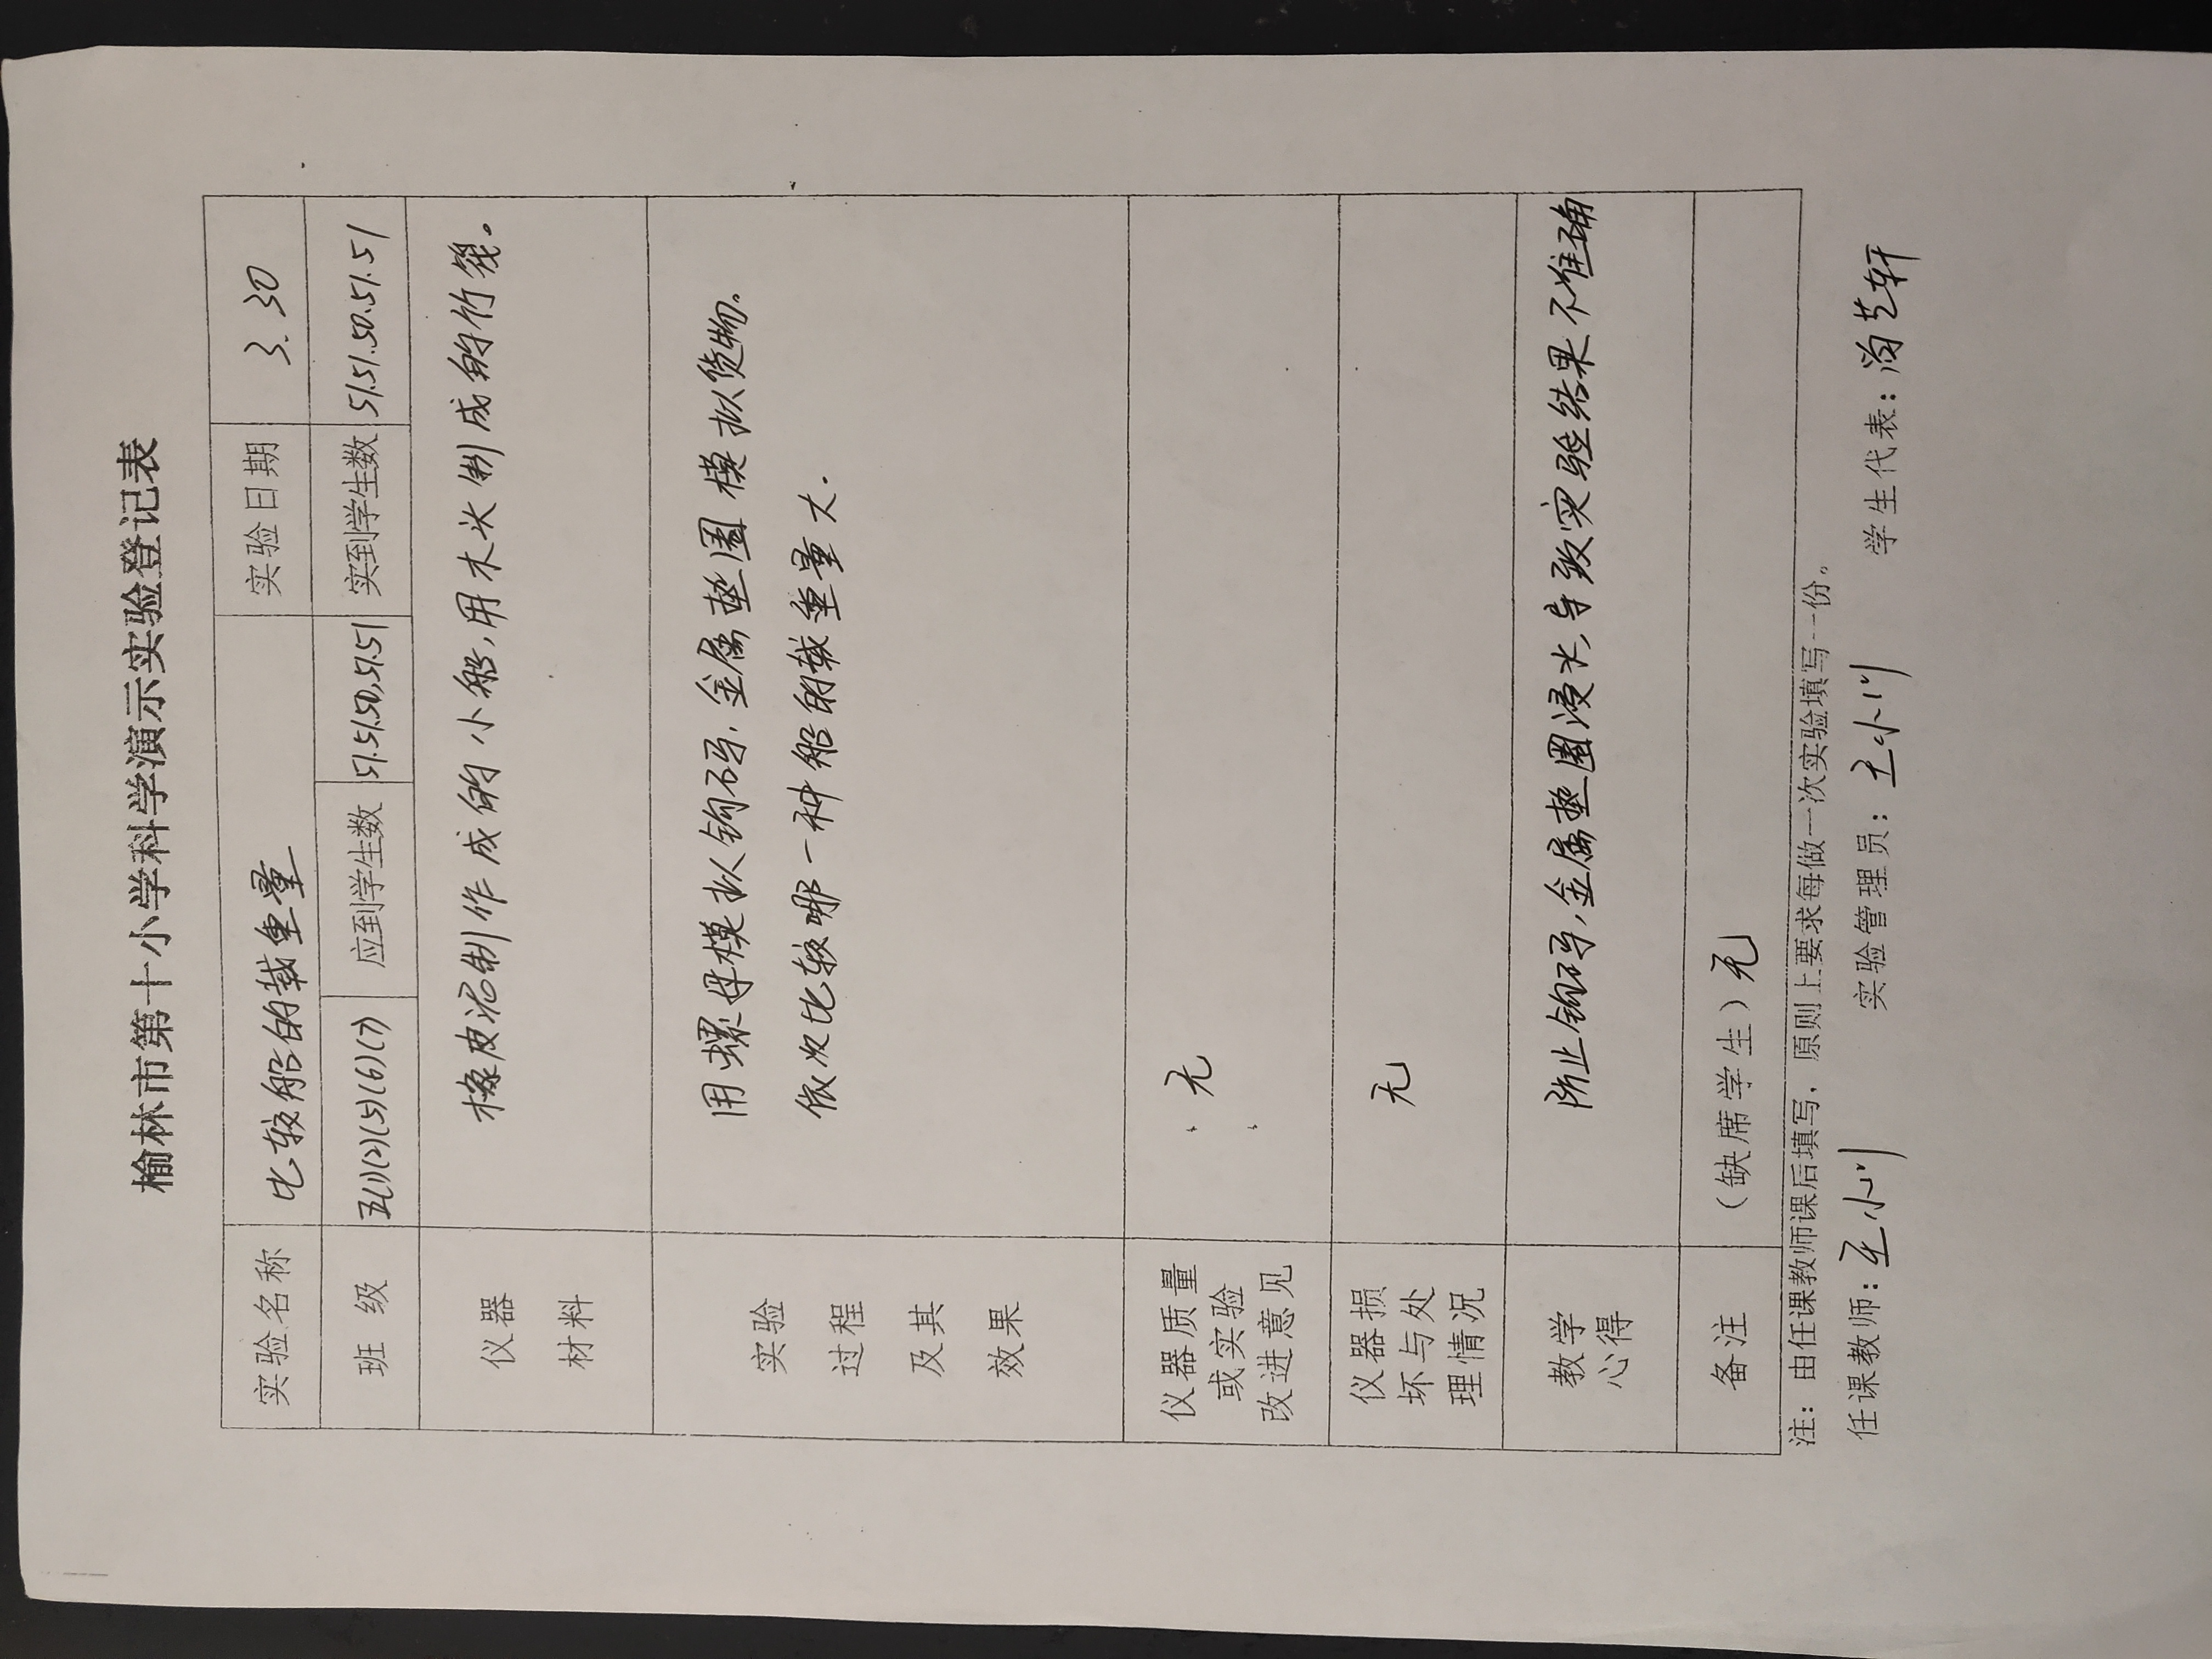 榆林市第十小学科学演示实验登记表
实验名称 比较船的载重量 实验日期 3.30
班 级 五(1)(2)(5)(6)(7) 应到学生数 51.51.50.51.51 实到学生数 51.51.50.51.51
仪器
材料
橡皮泥制作成的小船,用木头制成的竹筏。
实验
过程
及其
效果
用螺母模拟钩码,金属垫圈模拟货物。
依次比较哪一种船的载重量大.
仪器质量
或实验
改进意见
无
仪器损
坏与处
理情况
无
教学
心得
防止钩码,金属垫圈浸水,导致实验结果不准确
备注 (缺席学生)无
注:由任课教师课后填写,原则上要求每做一次实验填写一份。
任课教师:王小川 实验管理员:王小川 学生代表:艺轩